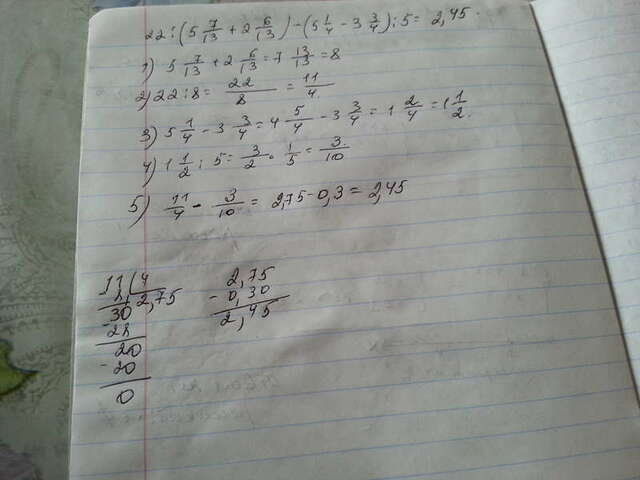 22 : (5 7/13 + 2 6/13) - (5 1/4 - 3 3/4) : 5 = 2,45
1) 5 7/13 + 2 6/13 = 7 13/13 = 8
2) 22 : 8 = 22/8 = 11/4
3) 5 1/4 - 3 3/4 = 4 5/4 - 3 3/4 = 1 2/4 = 1 1/2
4) 1 1/2 : 5 = 3/2 · 1/5 = 3/10
5) 11/4 - 3/10 = 2,75 - 0,3 = 2,45
11 | 4
2,75
30
- 28
20
- 20
0
2,75
- 0,30
2,45